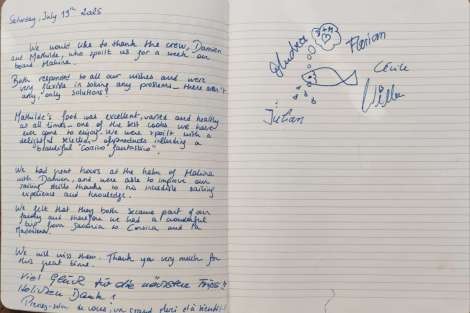 Saturday, July 19th 2025
We would like to thank the crew, Damien
and Mathilde, who spoilt us for a week on
board Maloria.
Both responded to all our wishes and were
very flexible in solving any problems - there aren't
any "only solutions"!
Mathilde's food was excellent, varied and healthy
at all times - one of the best cooks we have
ever come to enjoy. We were spoilt with a
delightful selection of products reflecting a
"beautiful fantastico".
We had great hours at the helm of
with Damien, and were able to improve our
sailing skills thanks to his incredible sailing
experience and knowledge.
We felt that they both became part of our
family and therefore we had a wonderful
trip from Sardinia to Corsica and La
Maddalena.
We will miss them. Thank you very much for
this great time.
Viel Glück für die nächsten Trips!!
Herzlichen Dank!
Prenez-soin de vous, un grand merci et à bientôt!
Andrea
Florian
Cécile
Julian